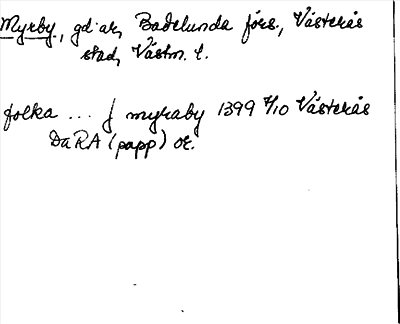 Myrby, gd·ar, Badelunda förs., Västerås
stad, Västm. l.
folka ... j myraby 1399 /10 Västerås
DaRA (papp) or.